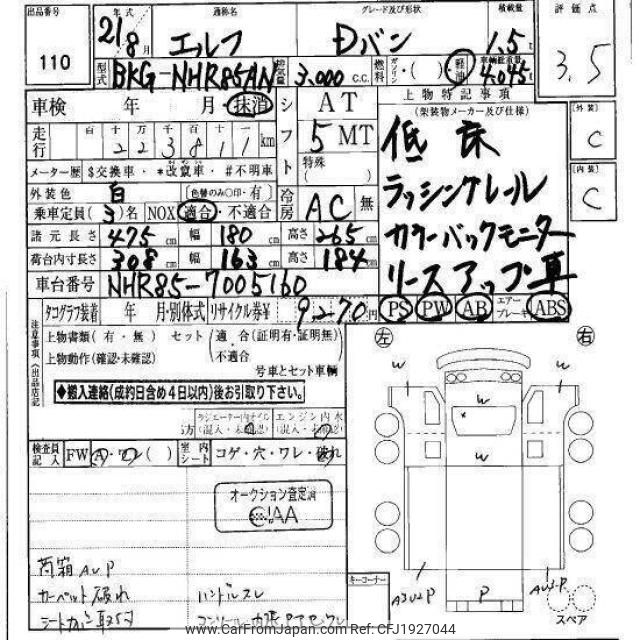 出品番号
110
年式
21 8月
通称名
エルフ
グレード及び形状
Dバン
積載量
1.5t
評価点
3.5
型式
BKG-NHR85AN
排気量
3,000 c.c.
燃料
ガソリン
軽油
車輌総重量
4.045t
車検 年 月・抹消
シフト
AT
5 MT
特殊
( )
上物特記事項
(架装物メーカー及び仕様)
低床
ラッシングレール
カラーバックモニター
リースアップ車
外装
C
内装
C
走行
百 十 万 千 百 十 一
223811 km
メーター歴 $交換車・*改竄車・#不明車
外装色 白 (色替のみ○印・有)
冷房 AC 無
乗車定員(3)名 NOX 適合・不適合
諸元長さ 475cm 幅 180cm 高さ 265cm
荷台内寸長さ 308cm 幅 163cm 高さ 184cm
車台番号 NHR85-7005160
PS PW AB エアーブレーキ ABS
タコグラフ装着 年 月・別体式 リサイクル券¥ 9270円
注意事項(出品店記)
上物書類(有・無) セット 適合(証明有・証明無)
上物動作(確認・未確認) 不適合
号車とセット車輌
◆搬入連絡(成約日含め4日以内)後お引取り下さい。
ラジエーター内オイル
(混入・未確認)
エンジン内水
(混入・未確認)
検査員記入
FW A・ワレ( )
室内シート
コゲ・穴・ワレ・破れ
オークション査定済
JAA
荷箱 AUP
カーペット破れ
ハンドルスレ
左
右
W
W
W
W
W
A3U2P
P
AU3P
キーコーナー
スペア
www.CarFromJapan.com Ref: CFJ1927044